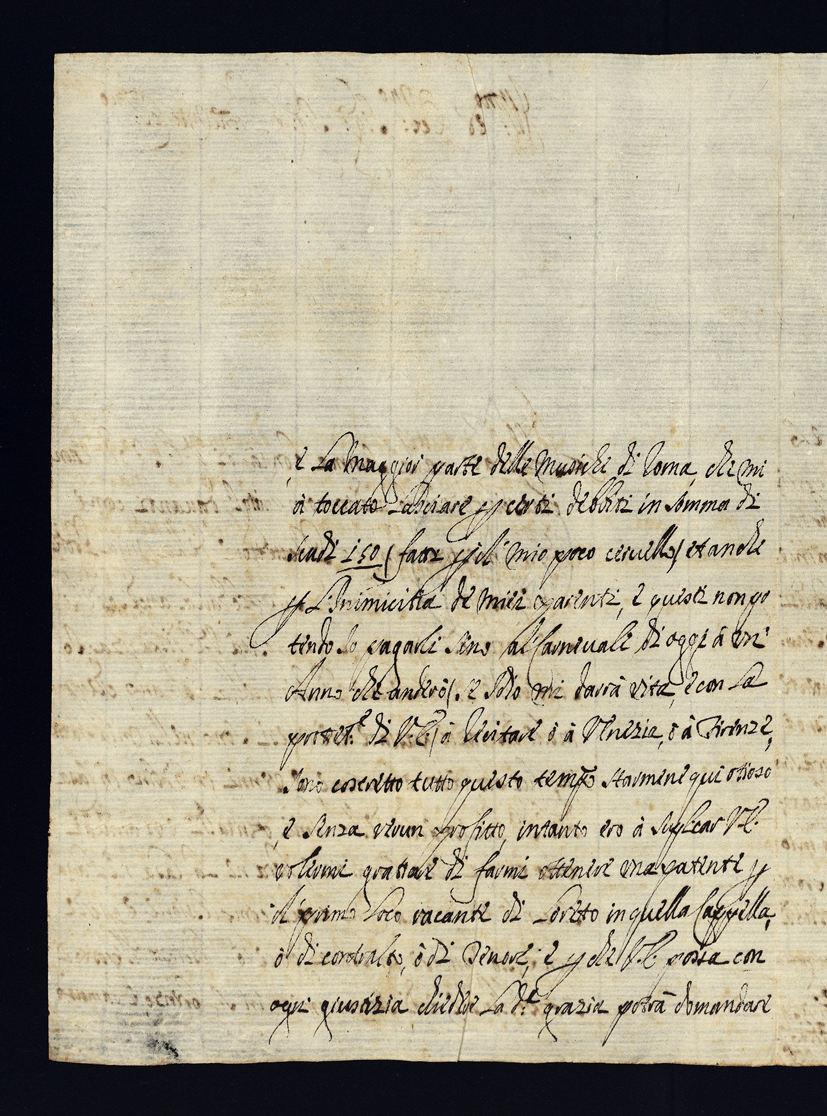 , e La Maggior parte delle Musiche di Roma, che mi
à toccato Lasciare p certi debbiti in somma di
scudi 150 ( fatti p il mio poco cervello ) et anche
p L'Inimicitia de miei parenti, e questi non po
tendo Io pagarli sino al Carnevale di oggi à un'
Anno che anderò ( se Iddio mi darrà vita, e con La
protet.e di V.E. ) à recitare ò à Venezia, ò à Firenze,
sono costretto tutto questo tempo starmene qui otioso
, e senza verun profitto, intanto ero à suplicar V.E.
volermi gratiare di farmi ottenere una patente p
il primo Loco vacante di Loreto in quella Cappella,
ò di contralto, ò di Tenore, e p che V.E. possa con
ogni giustizia chiedere La d.a grazia potrà domandare